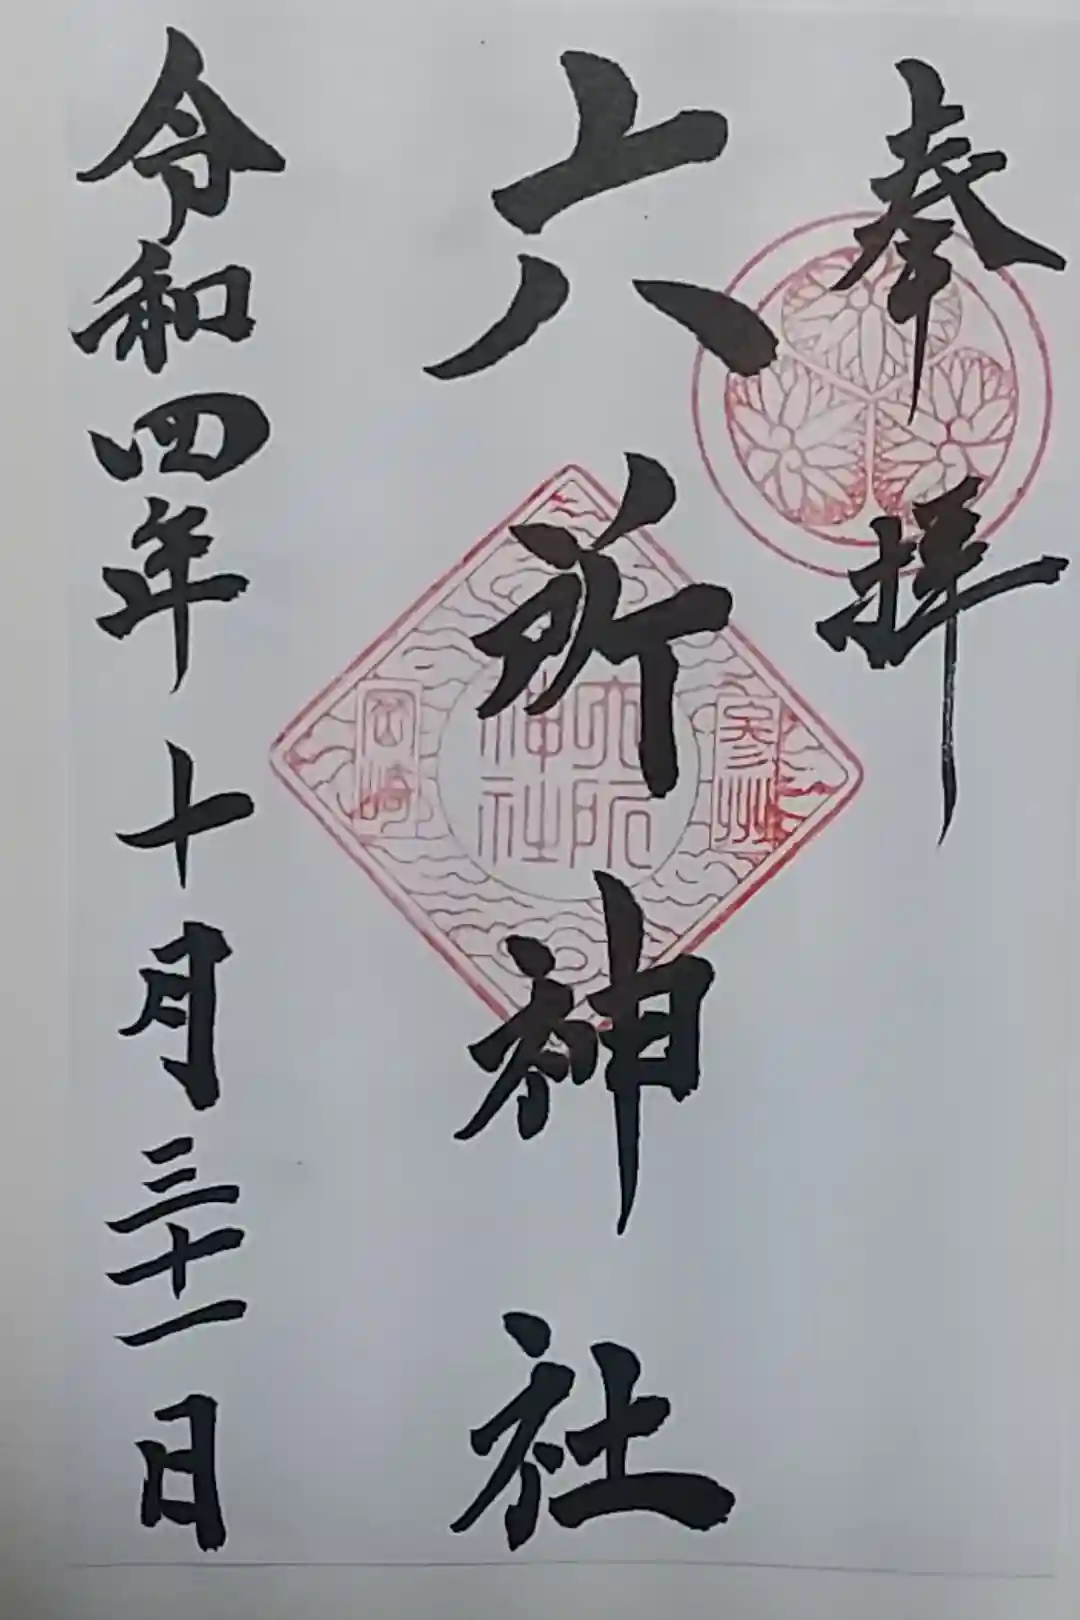 奉拝
参州
六所神社
六所
神社
岡崎
令和四年十月三十一日